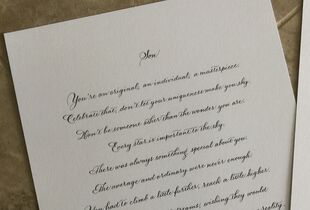 Son
You're an original, an individual, a masterpiece.
Celebrate that, don't let your uniqueness make you shy.
Don't be someone other than the wonder you are.
Every star is important to the sky.
There was always something special about you;
the average and ordinary were never enough.
You had to climb a little farther, reach a little higher,
dreams; wishing they would
reality